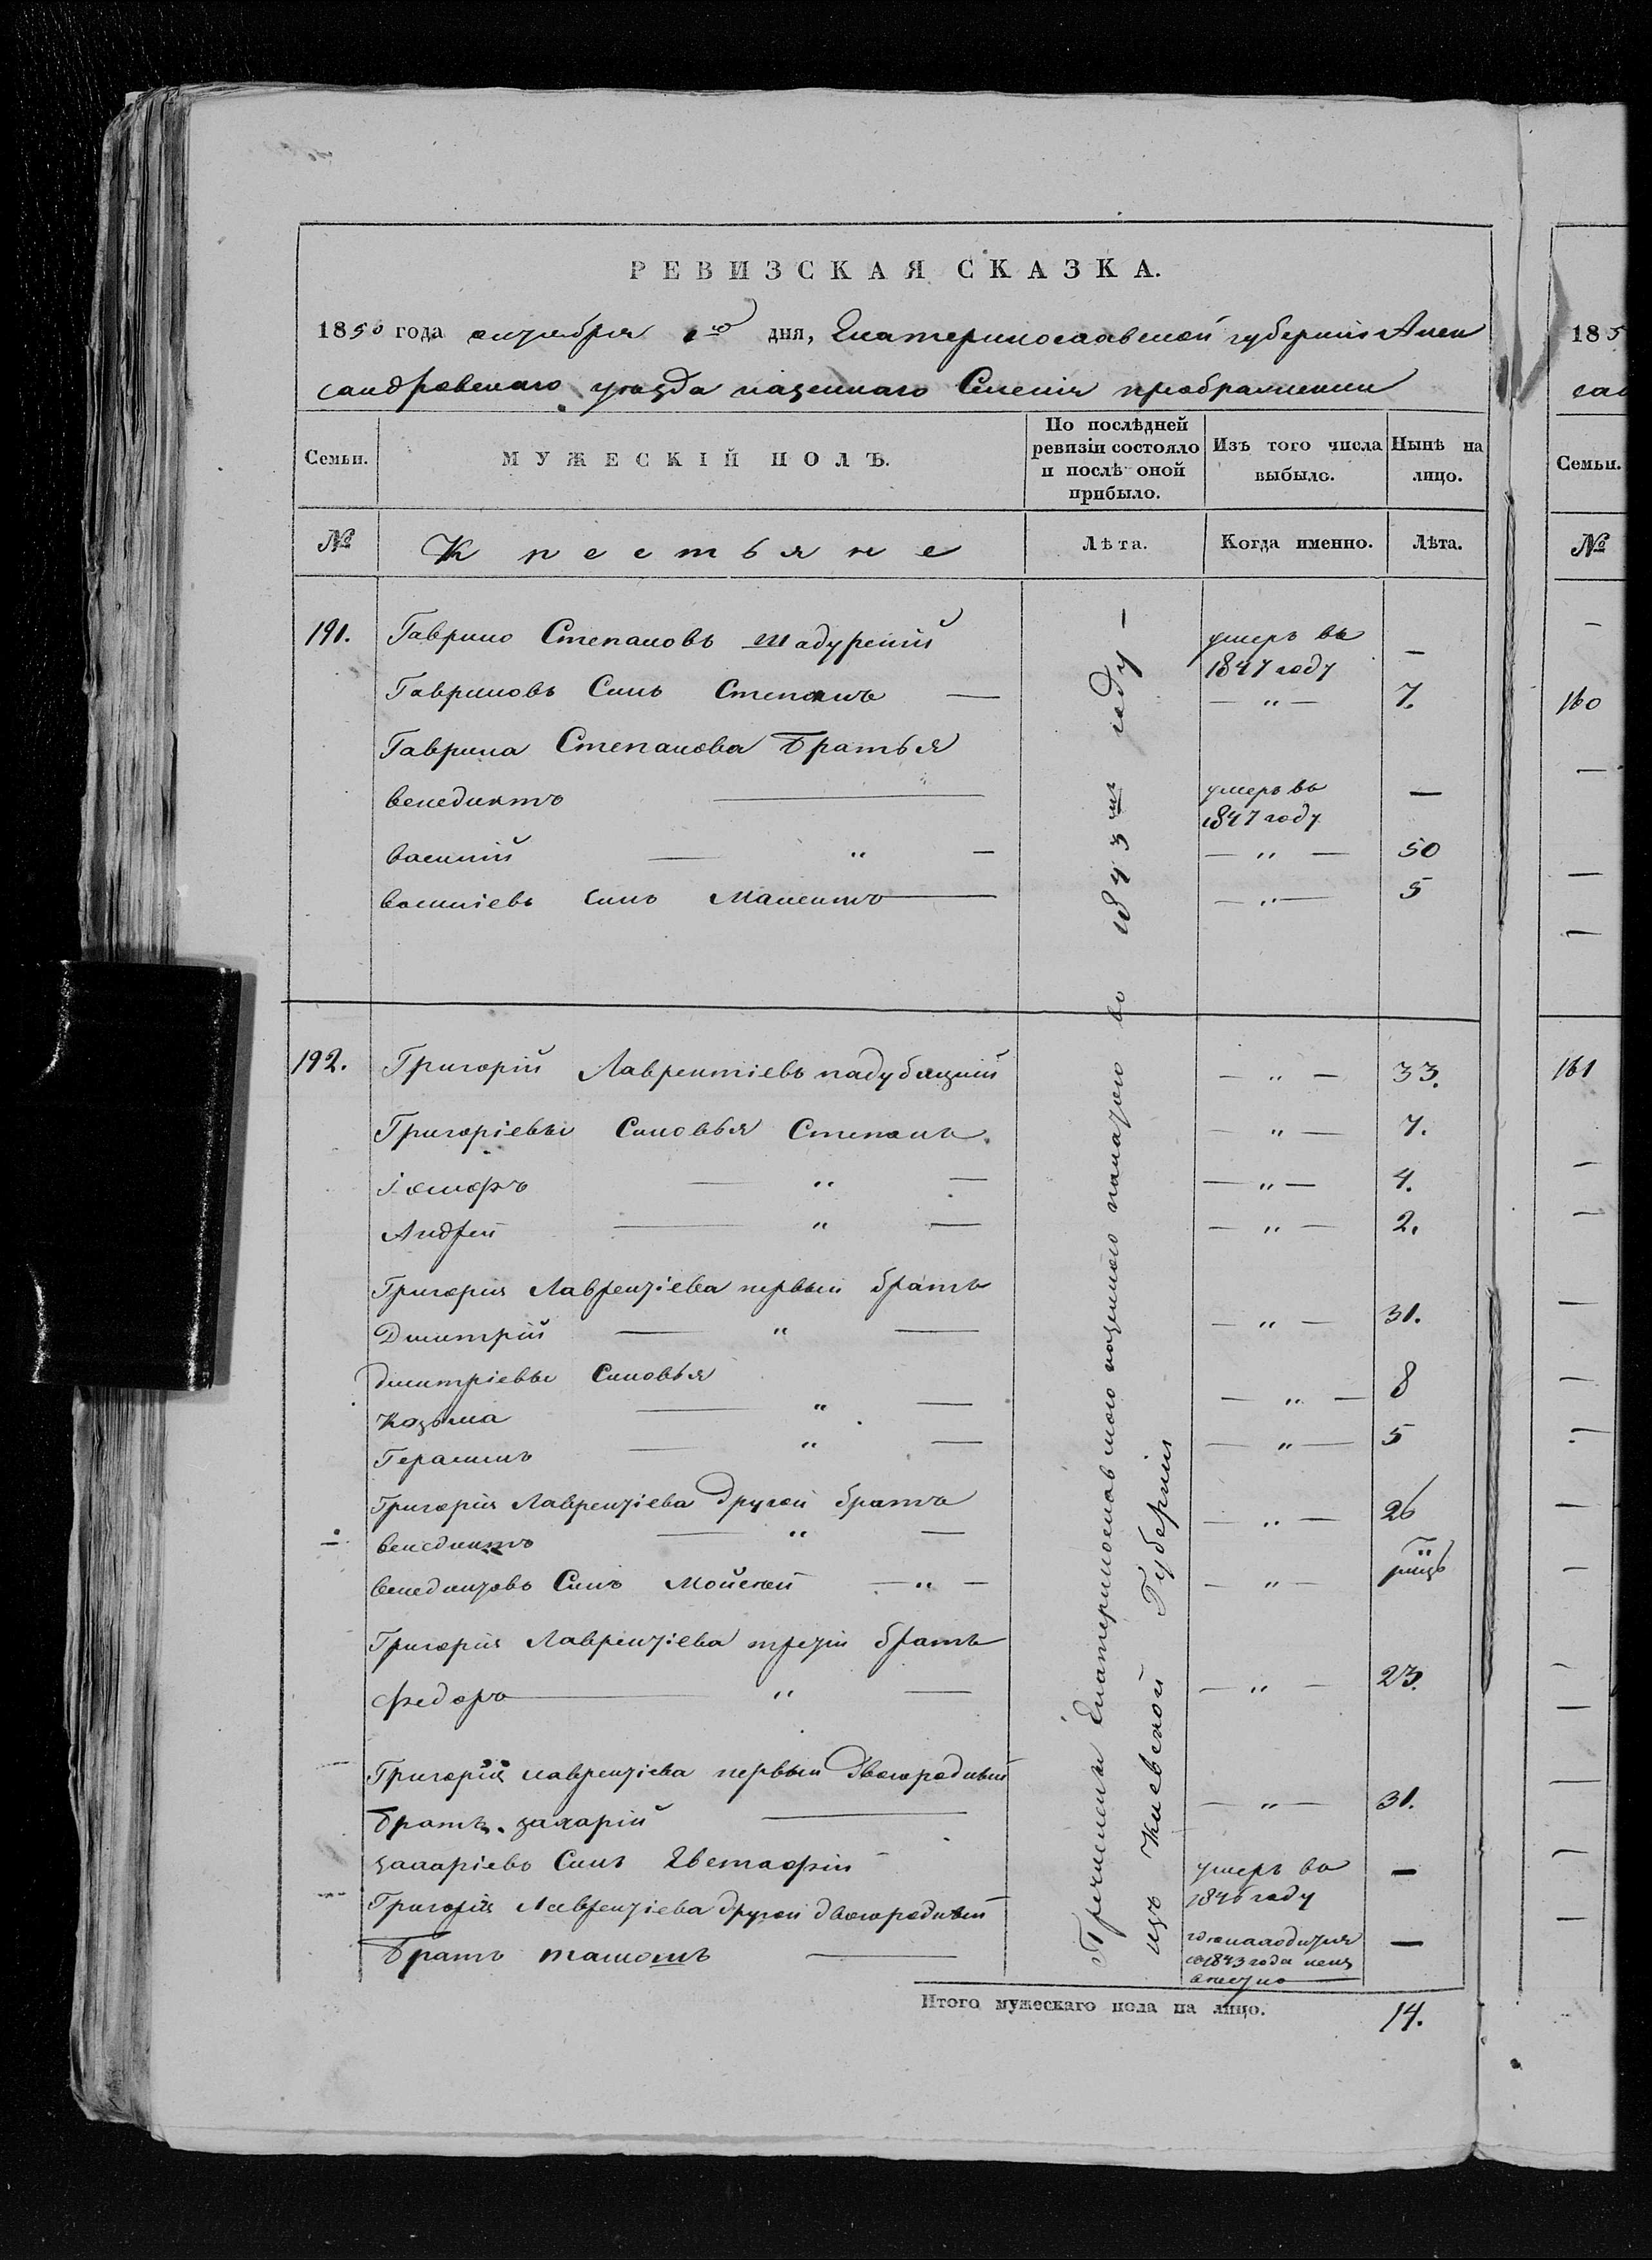 РЕВИЗСКАЯ СКАЗКА.
1850 года октября 1го дня, Екатеринославской губернии Алек
сандровскаго уѣзда казеннаго Селенія преображенки
Семьи.
МУЖЕСКІЙ ПОЛЪ.
По послѣдней ревизіи состояло и послѣ оной прибыло.
Изъ того числа выбыло.
Нынѣ на лицо.
№
Крестьяне
Лѣта.
Когда именно.
Лѣта.
191. Гаврило Степановъ Шадурскій умеръ въ 1847 году —
Гавриловъ Синъ Степанъ — — " — 7.
Гаврила Степанова Братья
венедиктъ — умеръ въ 1847 году —
василій — " — — " — 50
василіевъ Синъ Максимъ — — " — 5
192. Григорій Лаврентіевъ падубацкій — " — 33.
Григоріевы Синовья Степанъ. — " — 7.
— " — — " — 4.
Андрей — " — — " — 2.
Григорія Лаврентіева первый братъ
Дмитрій — " — — " — 31.
дмитріевы Синовья
Козьма — " — — " — 8
Герасимъ — " — — " — 5
Григорія Лаврентіева другой братъ
венедиктъ — " — — " — 26
венедиктовъ Синъ Мойсей — " — — " —
Григорія Лаврентіева третій братъ
федоръ — " — — " — 23.
Григорія лаврентіева первый двоюродный
Братъ. захарій — — " — 31.
захаріевъ Синъ Евстафій умеръ въ 1846 году —
Григорія Лаврентіева другой двоюродный
Братъ —
1843 года —
Причислены Екатеринославскою казенною палатою въ 1843мъ году —
изъ Киевской Губерніи
Итого мужескаго пола на лицо. 14.
185
сан
Семьи.
№
160
161